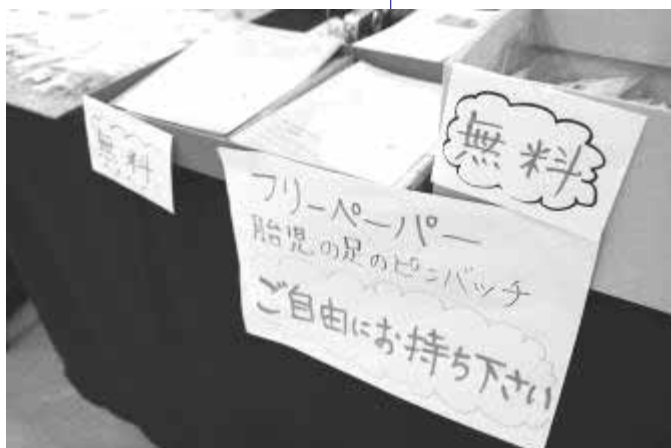 無料
無料
フリーペーパー
胎児の足のピンバッチ
ご自由にお持ち下さい